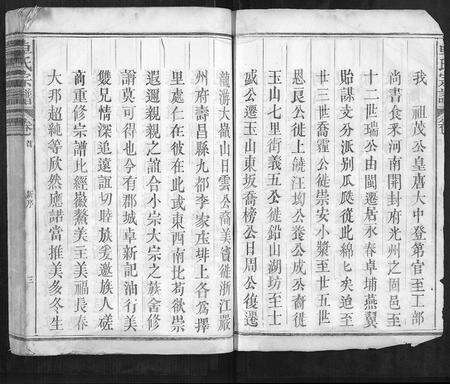 我 祖茂公皇唐大中登第官至工部
尚書食釆河南開封府光州之固邑至
十二世瑞公由閩遷居永春卓埔燕翼
貽謀支分派別瓜瓞從此綿 矣迨至
廿三世喬 公徙崇安小漿至廿五世
恩良公徙上饒江均公養公成公喬徙
玉山七里街義五公徙鉛山湖坊至士
誠公遷玉山東坂喬榜公日周公復遷
龍游大 山日雲公喬美 徙浙江嚴
州府壽昌縣九都李家 上各爲擇
里處仁在彼在此或東西南北苟欲崇
遐邇親親之誼合小宗大宗之 會修
譜莫可得也今有郡城卓新記油行美
雙兄情深追遠誼切睦族爰邀族人磋
商重修宗譜比經徽 美主美福長春
大邦超純等欣然應諾當推美 冬生
氏宗譜
卷首
三
氏宗譜